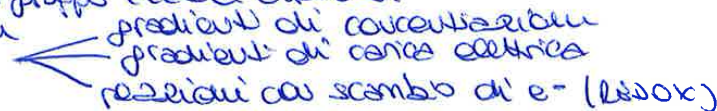 gradienti di concentrazioni
gradienti di carica elettrica
reazioni con scambio di e- (RedOX)